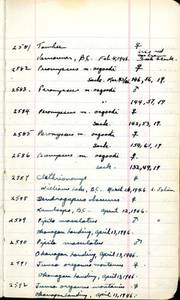 2581 Towhee ♀
Vancouver, B.C. Feb. 4, 1946.
2582 Peromyscus m. osgoodi ♀
2583 Peromyscus m. osgoodi ♂
" 144, 57, 19
2584 Peromyscus m. osgoodi ♀
2585 Peromyscus m. osgoodi
2586 Peromyscus m. osgoodi ♀
" 132, 49, 19
2587 Clethrionomys
Williams Lake, B.C.
2588 Dendragapus obscurus ♀
Kamloops, B.C. April 12, 1946.
2589 Pipilo maculatus ♂
Okanagan Landing, April 13, 1946.
2590 Pipilo maculatus ♂
Okanagan Landing, April 13, 1946.
2591 Junco oreganus montanus ♀
Okanagan Landing, April 13, 1946.
2592 Junco oreganus montanus ♀
Okanagan Landing, April 13, 1946.